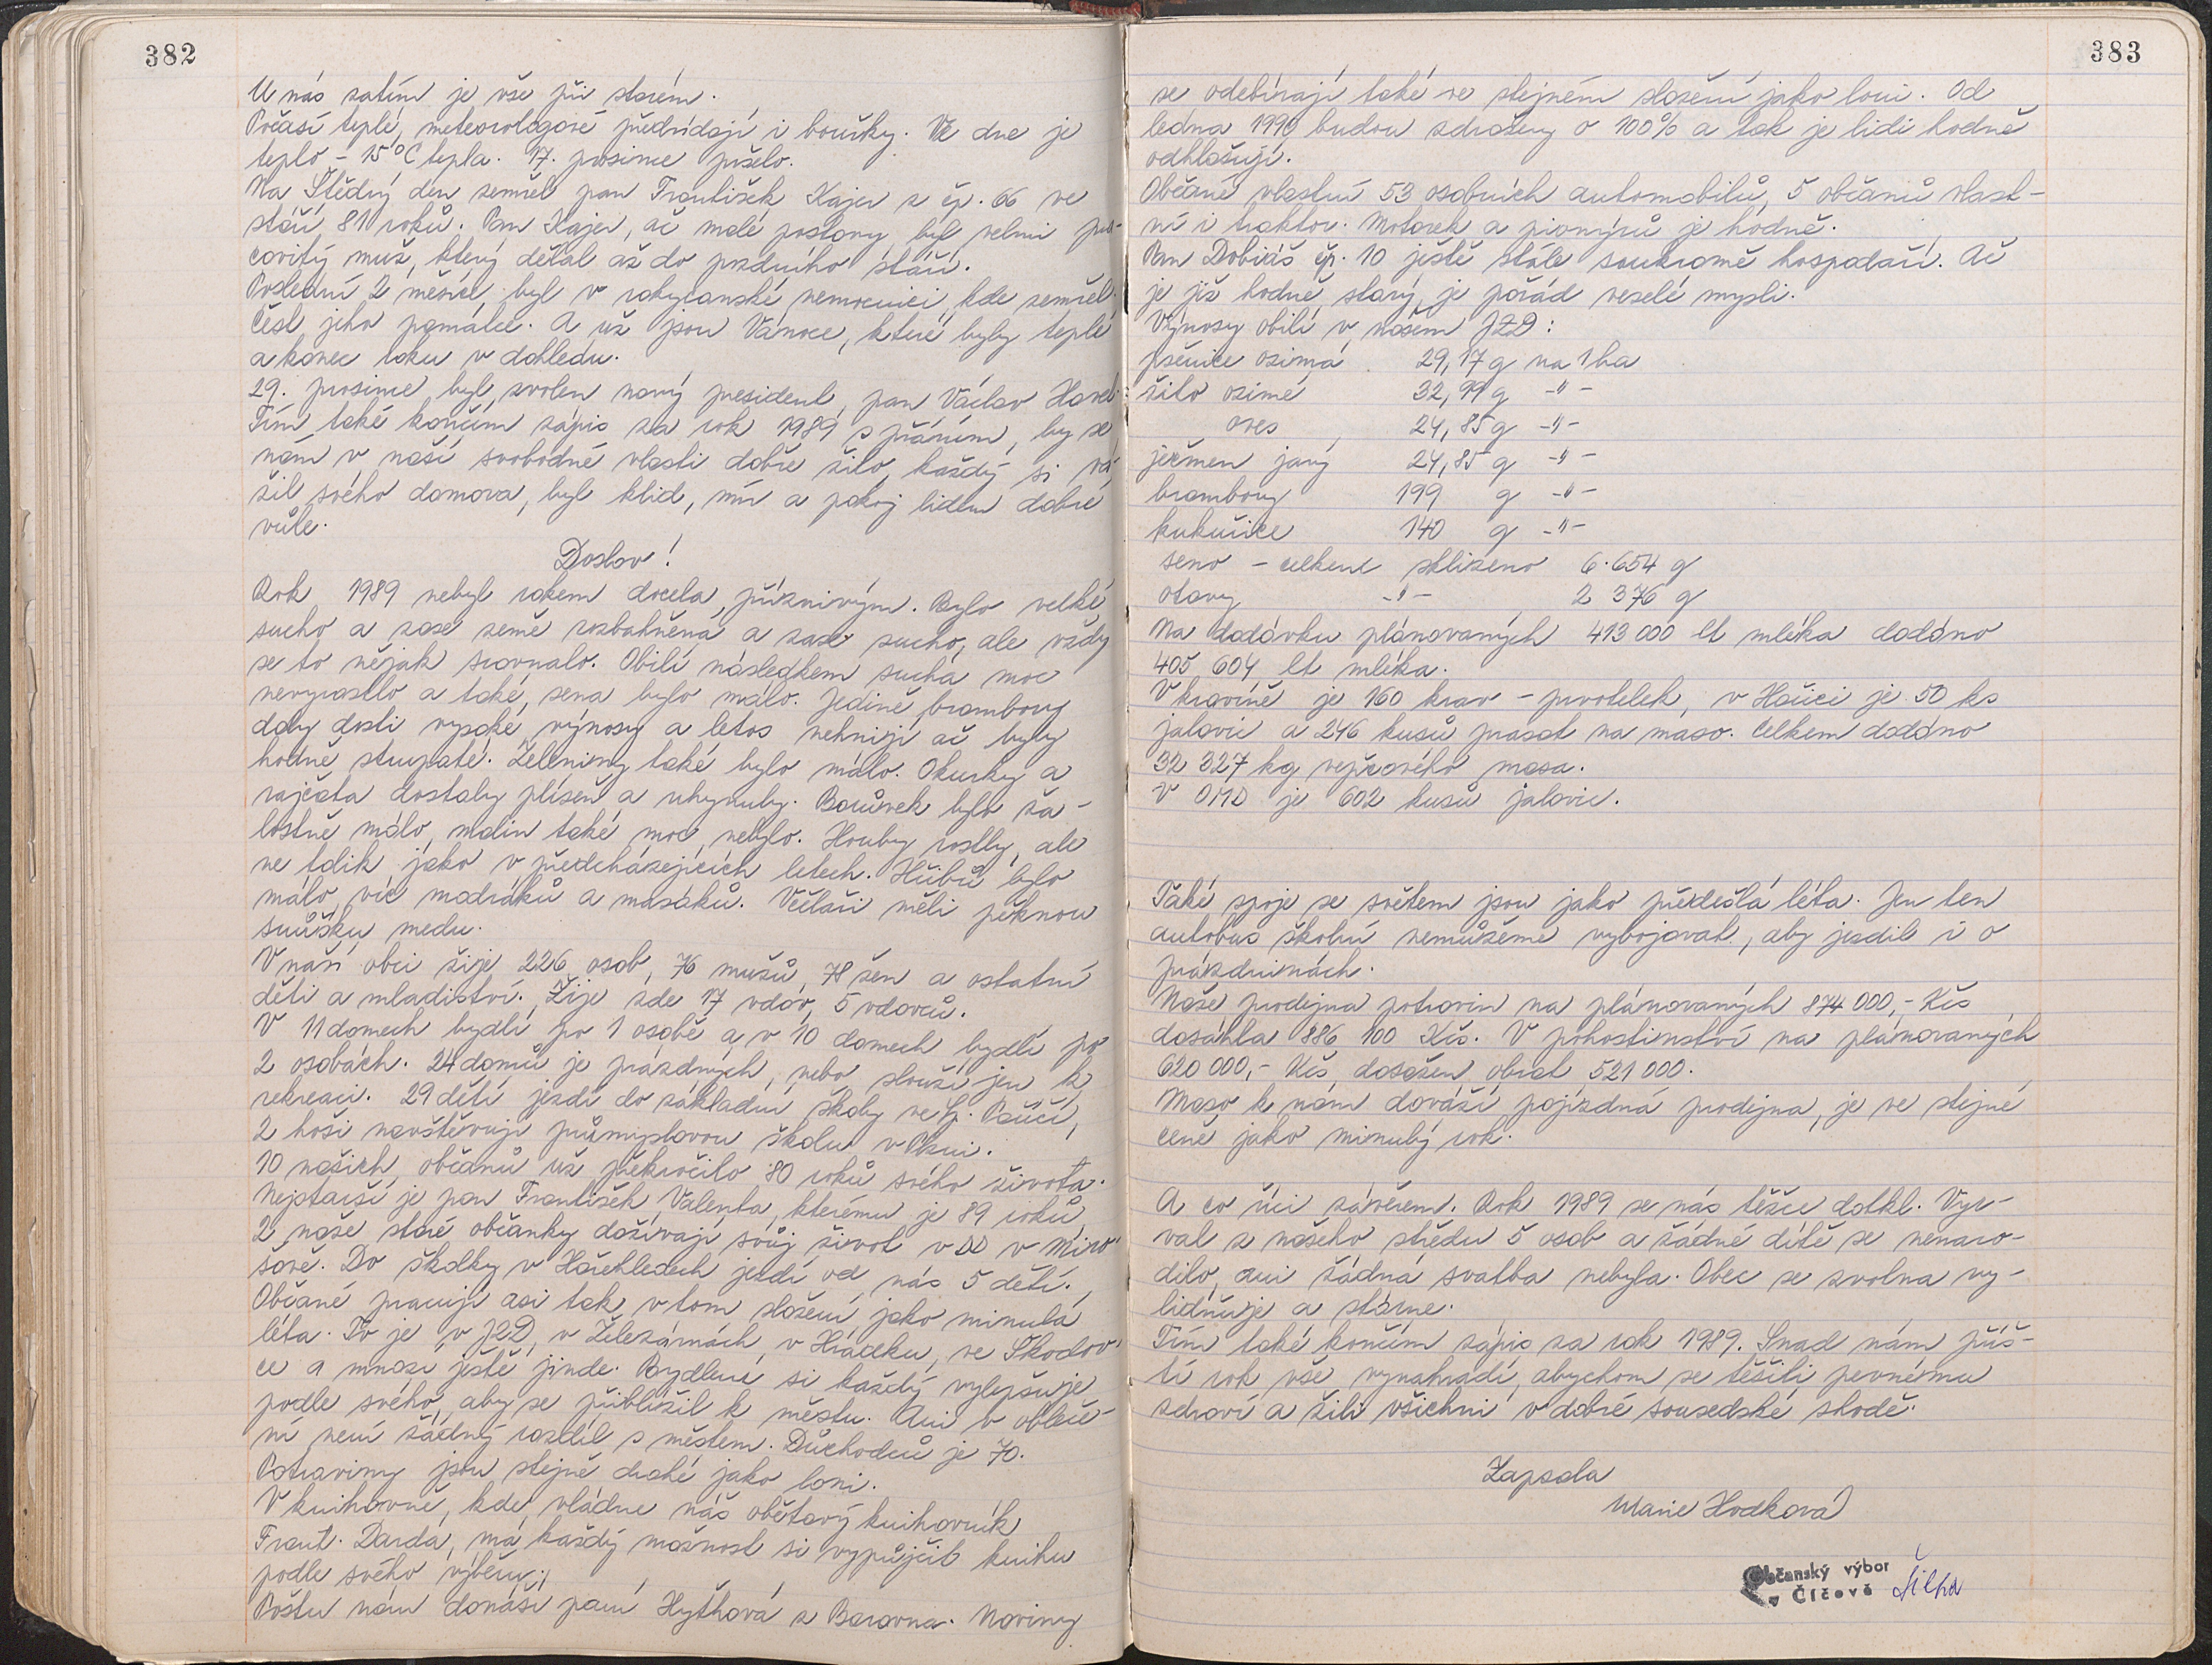 382
U nás zatím je vše při starém.
Počasí teplé, meteorologové předvídají i bouřky. Ve dne je
teplo - 15°C tepla. 17. prosince pršelo.
Na Štědrý den zemřel pan František Kajer z čp. 66 ve
stáří 81 roků. Pan Kajer, ač malé postavy, byl velmi pra-
covitý muž, který dělal až do pozdního stáří.
Poslední 2 měsíce byl v rokycanské nemocnici, kde zemřel.
Čest jeho památce. A už jsou Vánoce, které byly teplé
a konec roku v dohledu.
29. prosince byl zvolen nový president, pan Václav Havel.
Tím také končím zápis za rok 1989 s přáním, by se
nám v naší svobodné vlasti dobře žilo, každý si vá-
žil svého domova, byl klid, mír a pokoj lidem dobré
vůle.
Doslov!
Rok 1989 nebyl rokem docela příznivým. Bylo velké
sucho a zase země rozbahněná a zase sucho, ale vždy
se to nějak srovnalo. Obilí následkem sucha moc
nevyrostlo a také sena bylo málo. Jedině brambory
daly dosti vysoké výnosy a letos nehnijí ač byly
hodně strupaté. Zeleniny také bylo málo. Okurky a
rajčata dostaly plíseň a uhynuly. Borůvek bylo ža-
lostně málo, malin také moc nebylo. Houby rostly, ale
ne tolik jako v předcházejících letech. Hřibů bylo
málo, víc modráků a masáků. Včelaři měli pěknou
snůšku medu.
V naší obci žije 226 osob, 76 mužů, 78 žen a ostatní
děti a mladiství. Žije zde 17 vdov, 5 vdovců.
V 11 domech bydlí po 1 osobě a v 10 domech bydlí po
2 osobách. 24 domů je prázdných, nebo slouží jen k
rekreaci. 29 dětí jezdí do základní školy ve Sp. Poříčí,
2 hoši navštěvují průmyslovou školu v Plzni.
10 našich občanů už překročilo 80 roků svého života.
Nejstarší je pan František Valenta, kterému je 89 roků,
2 naše staré občanky dožívají svůj život v DD v Miro-
šově. Do školky v Hořehledech jezdí od nás 5 dětí.
Občané pracují asi tak v tom složení jako minulá
léta. To je v JZD, v Železárnách, v Hrádku, ve Škodov-
ce a mnozí ještě jinde. Bydlení si každý vylepšuje
podle svého, aby se přiblížil k městu. Ani v obleče-
ní není žádný rozdíl s městem. Důchodců je 70.
Potraviny jsou stejně drahé jako loni.
V knihovně, kde vládne náš obětavý knihovník
Frant. Darda, má každý možnost si vypůjčit knihu
podle svého výběru.
Poštu nám donáší paní Hythová z Borovna. Noviny
383
se odebírají také ve stejném složení jako loni. Od
ledna 1990 budou zdraženy o 100% a tak je lidi hodně
odhlašují.
Občané vlastní 53 osobních automobilů, 5 občanů vlast-
ní i traktor. Motorek a pionýrů je hodně.
Pan Dobiáš čp. 10 ještě stále soukromě hospodaří. Ač
je již hodně starý, je pořád veselé mysli.
Výnosy obilí v našem JZD:
pšenice ozimá 29,17 q na 1 ha
žito ozimé 32,99 q -"-
oves 24,85 q -"-
ječmen jarý 24,85 q -"-
brambory 199 q -"-
kukuřice 140 q -"-
seno - celkem sklizeno 6.654 q
otavy -"- 2 376 q
Na dodávku plánovaných 413 000 lt mléka dodáno
405 604 lt mléka.
V kravíně je 160 krav - prvotelek, v Hořici je 50 ks
jalovic a 246 kusů prasat na maso. Celkem dodáno
32 327 kg vepřového masa.
V OMD je 602 kusů jalovic.
Také spoje se světem jsou jako předešlá léta. Jen ten
autobus školní nemůžeme vybojovat, aby jezdil i o
prázdninách.
Naše prodejna potravin na plánovaných 874 000,- Kčs
dosáhla 886 100 Kčs. V pohostinství na plánovaných
620 000,- Kčs dosažen obrat 521 000.
Maso k nám dováží pojízdná prodejna, je ve stejné
ceně jako minulý rok.
A co říci závěrem. Rok 1989 se nás těžce dotkl. Vyr-
val z našeho středu 5 osob a žádné dítě se nenaro-
dilo, ani žádná svatba nebyla. Obec se zvolna vy-
lidňuje a stárne.
Tím také končím zápis za rok 1989. Snad nám příš-
tí rok vše vynahradí, abychom se těšili pevnému
zdraví a žili všichni v dobré sousedské shodě.
Zapsala
Marie Hodková
Občanský výbor
v Číčově
Šilha